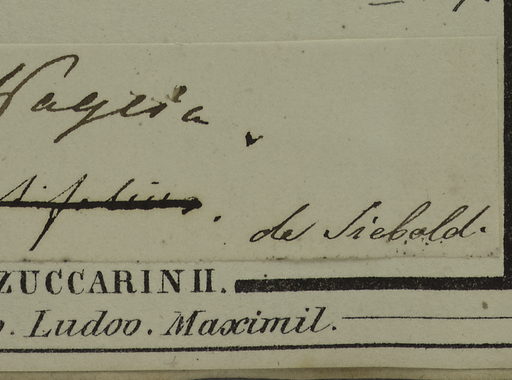 Nagesa
de Siebold.
ZUCCARINII.
Ludov. Maximil.